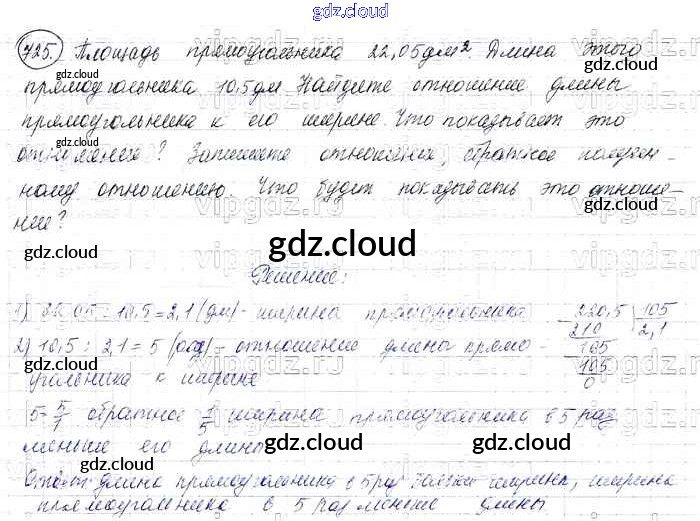 gdz.cloud
725. Площадь прямоугольника 22,05 дм². Длина этого
gdz.cloud gdz.cloud gdz.cloud
прямоугольника 10,5 дм Найдите отношение длины
прямоугольника к его ширине. Что показывает это
gdz.cloud gdz.cloud gdz.cloud
отношение? Запишите отношение, обратное получен-
ному отношению. Что будет показывать это отноше-
ние?
vipgdz.ru
gdz.cloud gdz.cloud gdz.cloud
Решение:
1) 22,05 : 10,5 = 2,1 (дм) - ширина прямоугольника 220,5 | 105
210 2,1
2) 10,5 : 2,1 = 5 - отношение длины прямо- 105
105
угольника к ширине 0
5 = 5/1 обратное 1/5 ширина прямоугольника в 5 раз
меньше его длины
gdz.cloud gdz.cloud gdz.cloud
Ответ: длина прямоугольника в 5 раз ширины, ширина
прямоугольника в 5 раз меньше длины